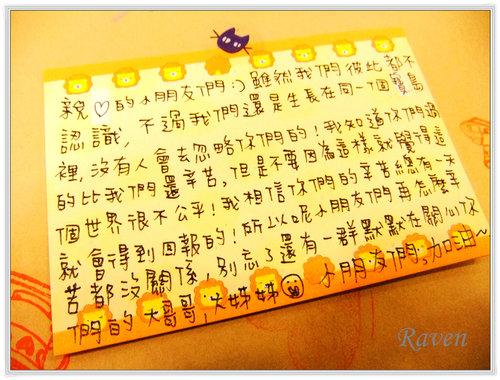 親♡的小朋友們:)雖然我們彼此都不
認識,不過我們還是生長在同一個寶島
裡,沒有人會去忽略你們的!我知道你們過
的比我們還辛苦,但是不要因為這樣就覺得這
個世界很不公平!我相信你們的辛苦總有一天
就會得到回報的!所以呢小朋友們再怎麼辛
苦都沒關係,別忘了還有一群默默在關心你
們的大哥哥,大姊姊 小朋友們,加油~
Raven